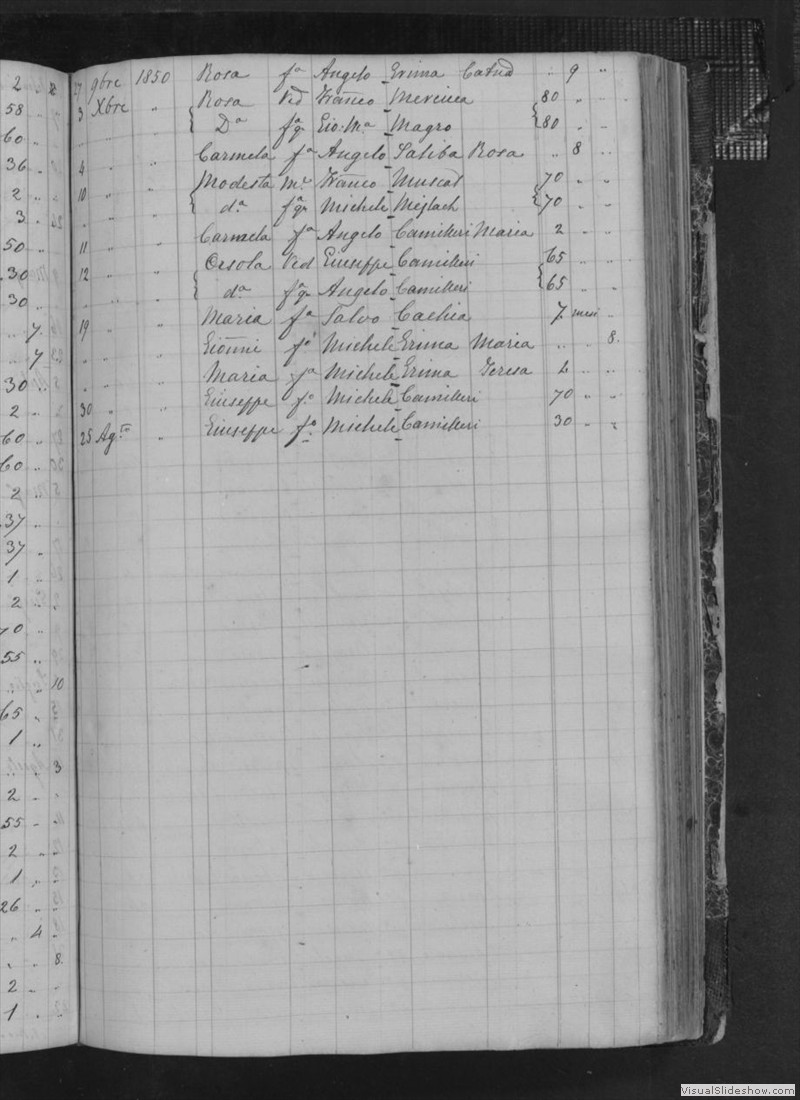 27 9bre 1850 Rosa fa Angelo Grima Catnd " 9 "
3 Xbre " Rosa Ved Franco Mercieca 80 " "
" " " Da fa q Gio: Ma Magro 80 " "
4 " " Carmela fa Angelo Saliba Rosa " 8 "
10 " " Modesta me Franco Muscat 70 " "
" " " da fa q Michele Mejlach 70 " "
11 " " Carmela fa Angelo Camilleri Maria 2 " "
12 " " Orsola Ved Giuseppe Camilleri 65 " "
" " " da fa q Angelo Camilleri 65 " "
19 " " Maria fa Salvo Cachia 7 mesi "
" " " Gionni fo Michele Grima Maria " " 8.
" " " Maria fa Michele Grima Teresa 2 " "
30 " " Giuseppe fo Michele Camilleri 70 " "
25 Agto " Giuseppe fo Michele Camilleri 30 " "
2
58
60
36
2
3
50
30
30
7
7
30
2
60
60
2
37
37
1
2
70
55
10
65
1
3
2
55
2
1
26
4
8
2
1
VisualSlideshow.com